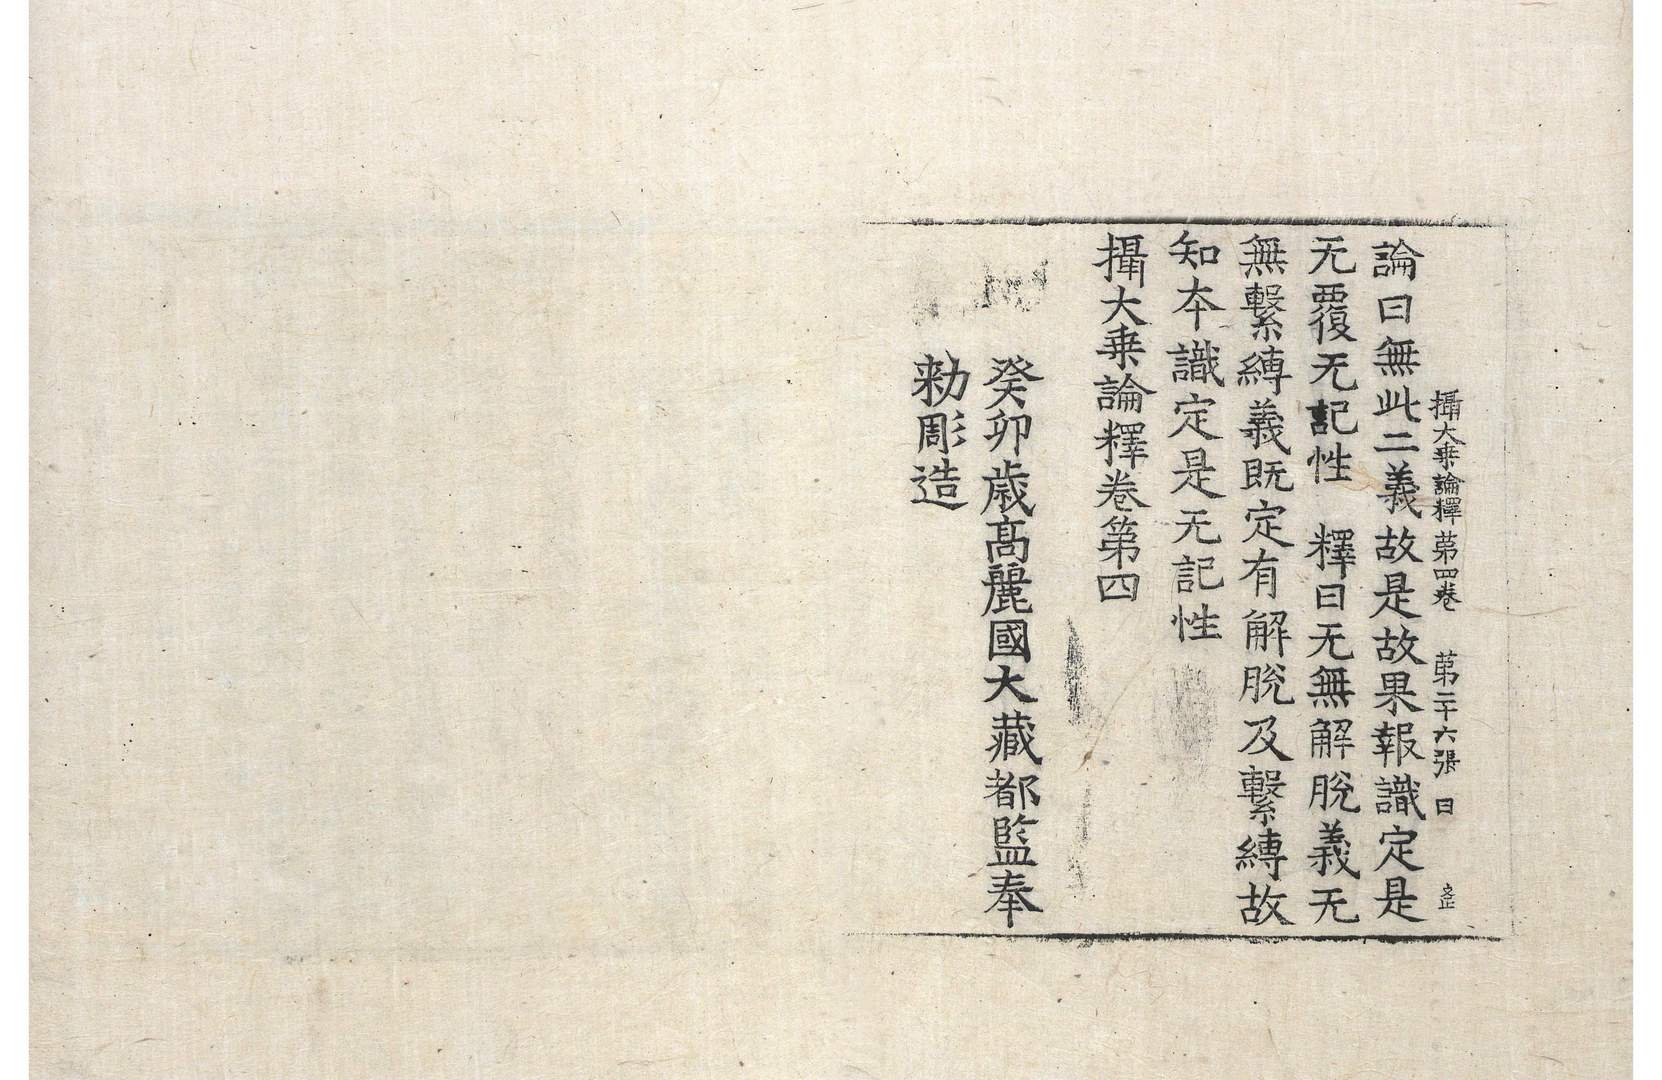 攝大乗論釋第四卷 第二十六張 日
論曰無此二義故是故果報識定是
无覆无記性 釋曰无無解脫義无
無繫縛義既定有解脫及繫縛故
知夲識定是无記性
攝大乗論釋卷第四
癸卯歳髙麗國大藏都監奉
勑彫造